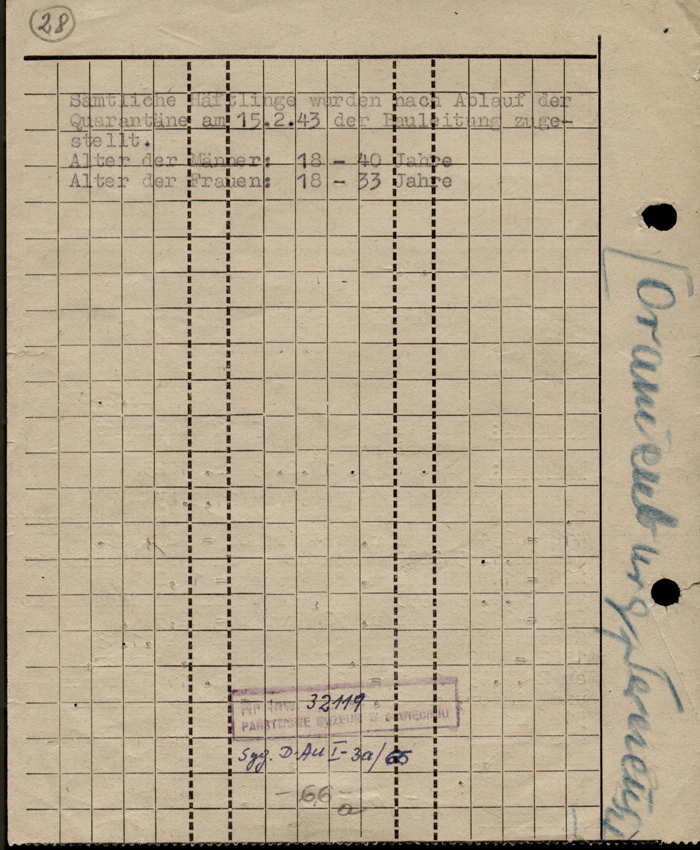 28
Sämtliche Häftlinge wurden nach Ablauf der
Quarantäne am 15.2.43 der Bauleitung zuge-
stellt.
Alter der Männer: 18 - 40 Jahre
Alter der Frauen: 18 - 33 Jahre
Nr inw. 32119
PAŃSTWOWE MUZEUM W OŚWIĘCIMIU
Syg. D-Au I-3a/65
- 66 -
a
Oranienburg